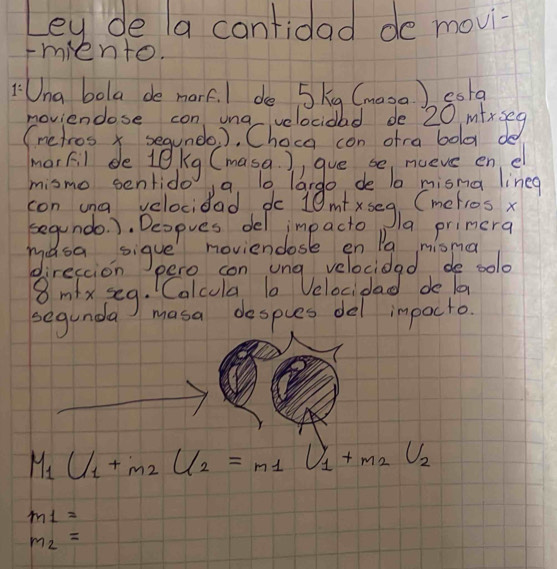 Ley de la cantidad de movi-
-miento.
1: Una bola de marfil de 5kg (masa.) esta
moviendose con una velocidad de 20 mtxseg
(metros x segundo.). Choca con otra bola de
marfil de 10kg (masa.), que se mueve en el
mismo sentido, a lo largo de la misma linea
con una velocidad de 10mtxseg (metros x
segundo.). Despues del impacto la primera
masa sigue moviendose en la misma
dirección pero con una velocidad de solo
8 mtx seg. Calcula la Velocidad de la
segunda masa despues del impacto.
M1 U1 + m2 U2 = m1 U1 + m2 U2
m1 =
m2 =